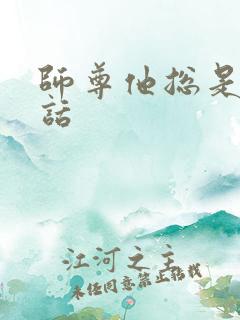 師尊他總是
話
江河之主
未經同意禁止轉載